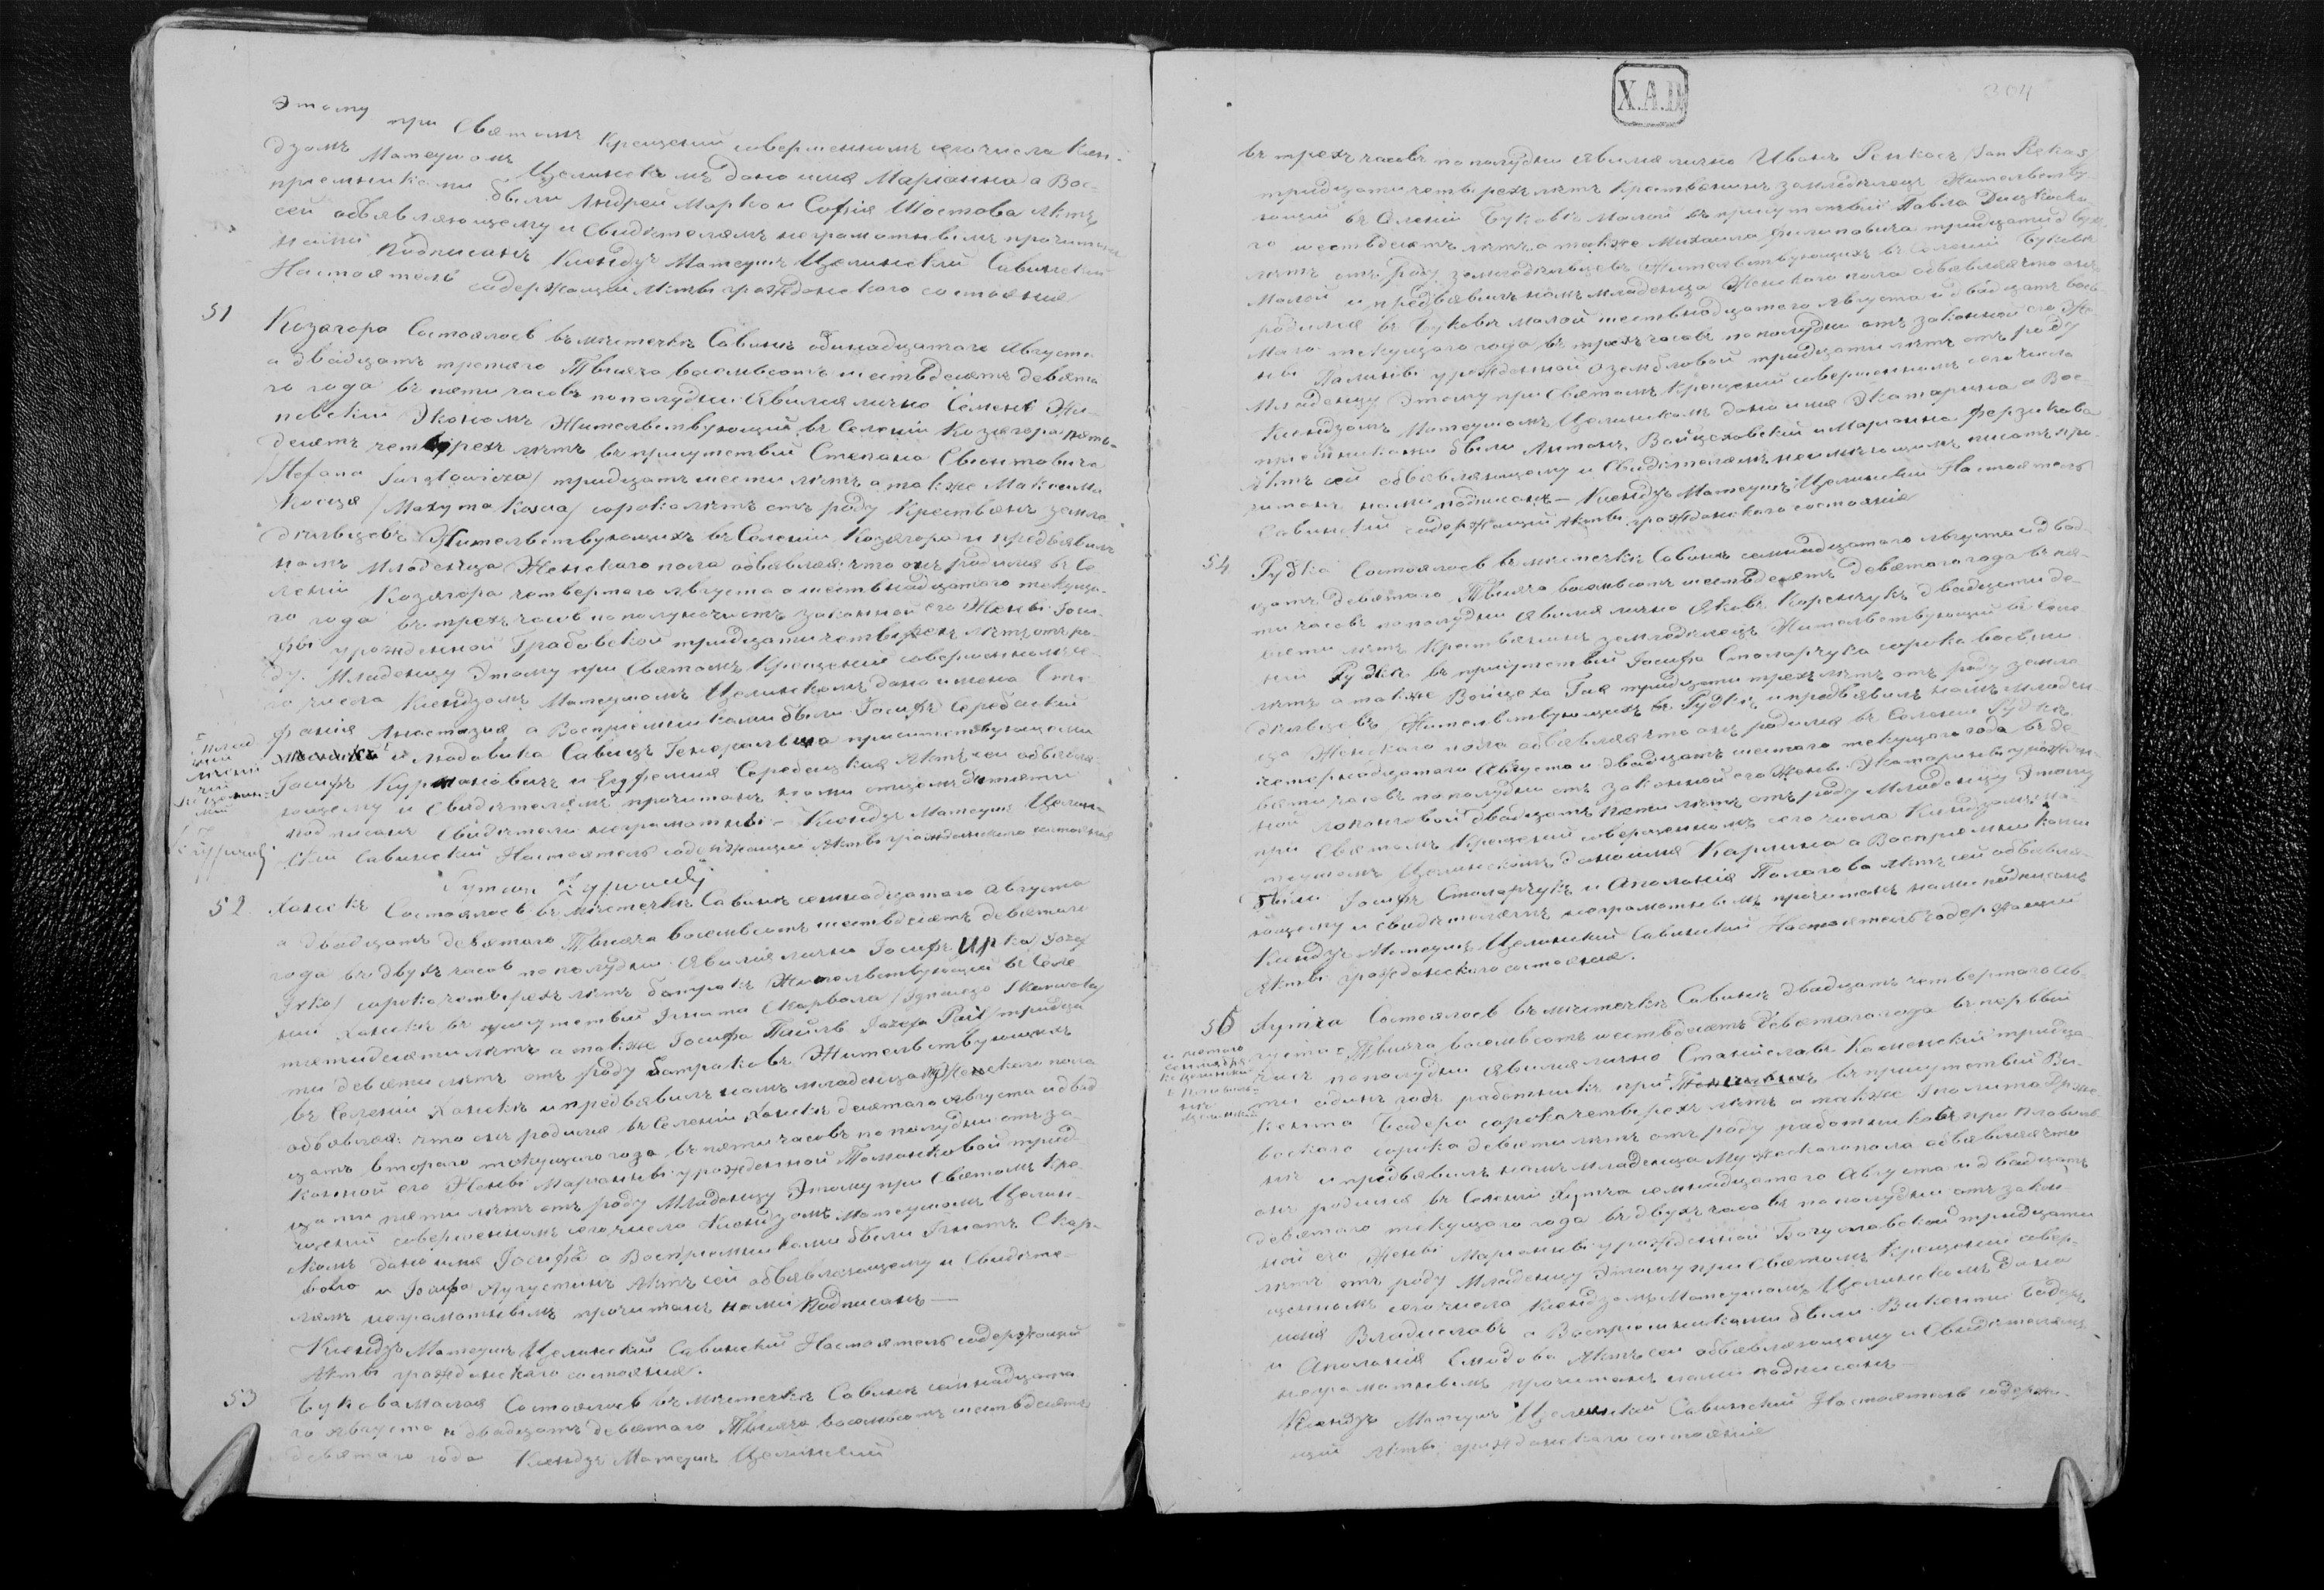 Этому при Святомъ Крещеніи совершенномъ сего числа Ксен-
дзомъ Матеушомъ Целинскомъ дано имя Маріанна а Вос-
пріемниками были Андрей Марко и Софія Шостова Актъ
сей объявляющему и Свидѣтелямъ неграмотнымъ прочитанъ
нами подписанъ Ксендзъ Матеушъ Целинскій Савинскій
Настоятель содержащій Акты гражданскаго состоянія
51 Козягора Состоялось въ мѣстечкѣ Савинъ одинадцатаго Августа
а двадцать третяго Тысяча восемьсотъ шестьдесятъ девята-
го года въ пяти часовъ пополудни Явился лично Семенъ
Экономъ Жительствующій въ Селеніи Козягора пять-
десятъ четырехъ лѣтъ въ присутствіи Степана
Stefana тридцать шести лѣтъ а также Максима
сорока лѣтъ отъ роду Крестьянъ земле-
дѣльцевъ Жительствующихъ въ Селеніи Козягора и предъявилъ
намъ Младенца Женскаго пола объявляя что онъ родился въ Се-
леніи Козягора четвертаго Августа а шестьнадцатаго текуща-
го года въ трехъ часовъ пополуночи отъ законной его Жены Госи-
фы урожденной Грабовской тридцати четырехъ лѣтъ отъ ро-
ду. Младенцу Этому при Святомъ Крещеніи совершенномъ се-
го числа Ксендзомъ Матеушомъ Целинскомъ дано имена Сте-
фанія Анастазія а Воспріемниками были Іосифъ
и Людовика Савицъ
Іосифъ и Еуфемія Актъ сей объявля-
ющему и Свидѣтелямъ прочитанъ нами отцемъ дитяти
подписанъ Свидѣтели неграмотны - Ксендзъ Матеушъ Целин-
скій Савинскій Настоятель содержащій Акты гражданскаго состоянія
52 Ханскъ Состоялось въ мѣстечкѣ Савинъ семнадцатаго Августа
а двадцать девятаго Тысяча восемьсотъ шестьдесятъ девятаго
года въ двухъ часов пополудни Явился лично Іосифъ Ирка /Józef
Irka/ сорока четырехъ лѣтъ батракъ Жительствующій въ Селе-
ніи Ханскъ въ присутствіи Игната Скарвола /Ignacego Skarwola/
пятидесяти лѣтъ а также Іосифа Пайль Józefa Pail/ тридца-
ти девяти лѣтъ отъ роду батраковъ Жительствующихъ
въ Селеніи Ханскъ и предъявилъ намъ младенца Женскаго пола
объявляя: что онъ родился въ Селеніи Ханскъ десятаго Августа и двад-
цать втораго текущаго года въ пяти часовъ пополудни отъ за-
конной его Жены Маріанны урожденной Томанковой трид-
цати пяти лѣтъ отъ роду Младенцу Этому при Святомъ Кре-
щеніи совершенномъ сего числа Ксендзомъ Матеушомъ Целин-
скомъ дано имя Іосифа а Воспріемниками были Игнатъ Скар-
вола и Іосифа Аугустинъ Актъ сей объявляющему и Свидѣте-
лямъ неграмотнымъ прочитанъ нами подписанъ —
Ксендзъ Матеушъ Целинскій Савинскій Настоятель содержащій
Акты гражданскаго состоянія.
53 Букова малая Состоялось въ мѣстечкѣ Савинъ семнадцата-
го Августа и двадцать девятаго Тысяча восемьсотъ шестьдесятъ
девятаго года Ксендзъ Матеушъ Целинскій
X.A.D
304
въ трехъ часовъ пополудни Явился лично Иванъ /Jan Rekas/
тридцати четырехъ лѣтъ Крестьянинъ земледѣлецъ Жительству-
ющій въ Селеніи Буковѣ Малой въ присутствіи Павла
го шестьдесятъ лѣтъ а также Михаила Филиповича тридцати двухъ
лѣтъ отъ роду земледѣльцевъ Жительствующихъ въ Селеніи Буковѣ
Малой и предъявилъ намъ младенца Женскаго пола объявляя что онъ
родился въ Буковѣ малой шестьнадцатаго Августа и двадцать вось-
маго текущаго года въ трехъ часовъ пополудни отъ законной его Же-
ны Палины урожденной Озембловой тридцати лѣтъ отъ роду
Младенцу Этому при Святомъ Крещеніи совершенномъ сего числа
Ксендзомъ Матеушомъ Целинскомъ дано имя Экатарина а Вос-
пріемниками были Антонъ Войцеховскій и Маріанна
Актъ сей объявляющему и Свидѣтелямъ неимѣющимъ писать про-
читанъ нами подписанъ — Ксендзъ Матеушъ Целинскій Настоятель
Савинскій содержащій Акты гражданскаго состоянія
54 Рудка Состоялось въ мѣстечкѣ Савинъ семнадцатаго Августа и двад-
цать девятаго Тысяча восемьсотъ шестьдесятъ девятаго года въ пя-
ти часовъ пополудни Явился лично Яковъ Коренчукъ двадцати де-
вяти лѣтъ Крестьянинъ земледѣлецъ Жительствующій въ Селе-
ніи Рудка въ присутствіи Іосифа Столярчука сорока восьми
лѣтъ а также Войцеха Гил тридцати трехъ лѣтъ отъ роду земле-
дѣльцевъ Жительствующихъ въ Рудкѣ и предъявилъ намъ младен-
ца Женскаго пола объявляя что онъ родился въ Селеніи Рудка
четырнадцатаго Августа и двадцать шестаго текущаго года въ де-
вяти часовъ пополудни отъ законной его Жены Экатарины урожден-
ной двадцать пяти лѣтъ отъ роду Младенцу Этому
при Святомъ Крещеніи совершенномъ сего числа Ксендзомъ Ма-
теушомъ Целинскомъ дано имя Каролина а Воспріемниками
были Іосифъ Столярчукъ и Аполонія Актъ сей объявля-
ющему и свидѣтелямъ неграмотнымъ прочитанъ нами подписанъ
Ксендзъ Матеушъ Целинскій Савинскій Настоятель содержащій
Акты гражданскаго состоянія.
Состоялось въ мѣстечкѣ Савинъ двадцать четвертаго Ав-
густа Тысяча восемьсотъ шестьдесятъ девятаго года въ первый
часъ пополудни явился лично Станіславъ Каменскій тридца-
ти одинъ годъ работникъ при въ присутствіи Ви-
кента Бадера сорока четырехъ лѣтъ а также Іполита
сорока девяти лѣтъ отъ роду работниковъ при
и предъявилъ намъ младенца Мужескаго пола объявляя что
онъ родился въ Селеніи семнадцатаго Августа и двадцать
девятаго текущаго года въ двухъ часовъ пополудни отъ закон-
ной его Жены Маріанны урожденной Богуславской тридцати
лѣтъ отъ роду Младенцу Этому при Святомъ Крещеніи совер-
шенномъ сего числа Ксендзомъ Матеушомъ Целинскомъ дано
имя Владиславъ а Воспріемниками были Викентій Бадеръ
и Аполонія Актъ сей объявляющему и Свидѣтелямъ
неграмотнымъ прочитанъ нами подписанъ —
Ксендзъ Матеушъ Целинскій Савинскій Настоятель содержа-
щій Акты гражданскаго состоянія